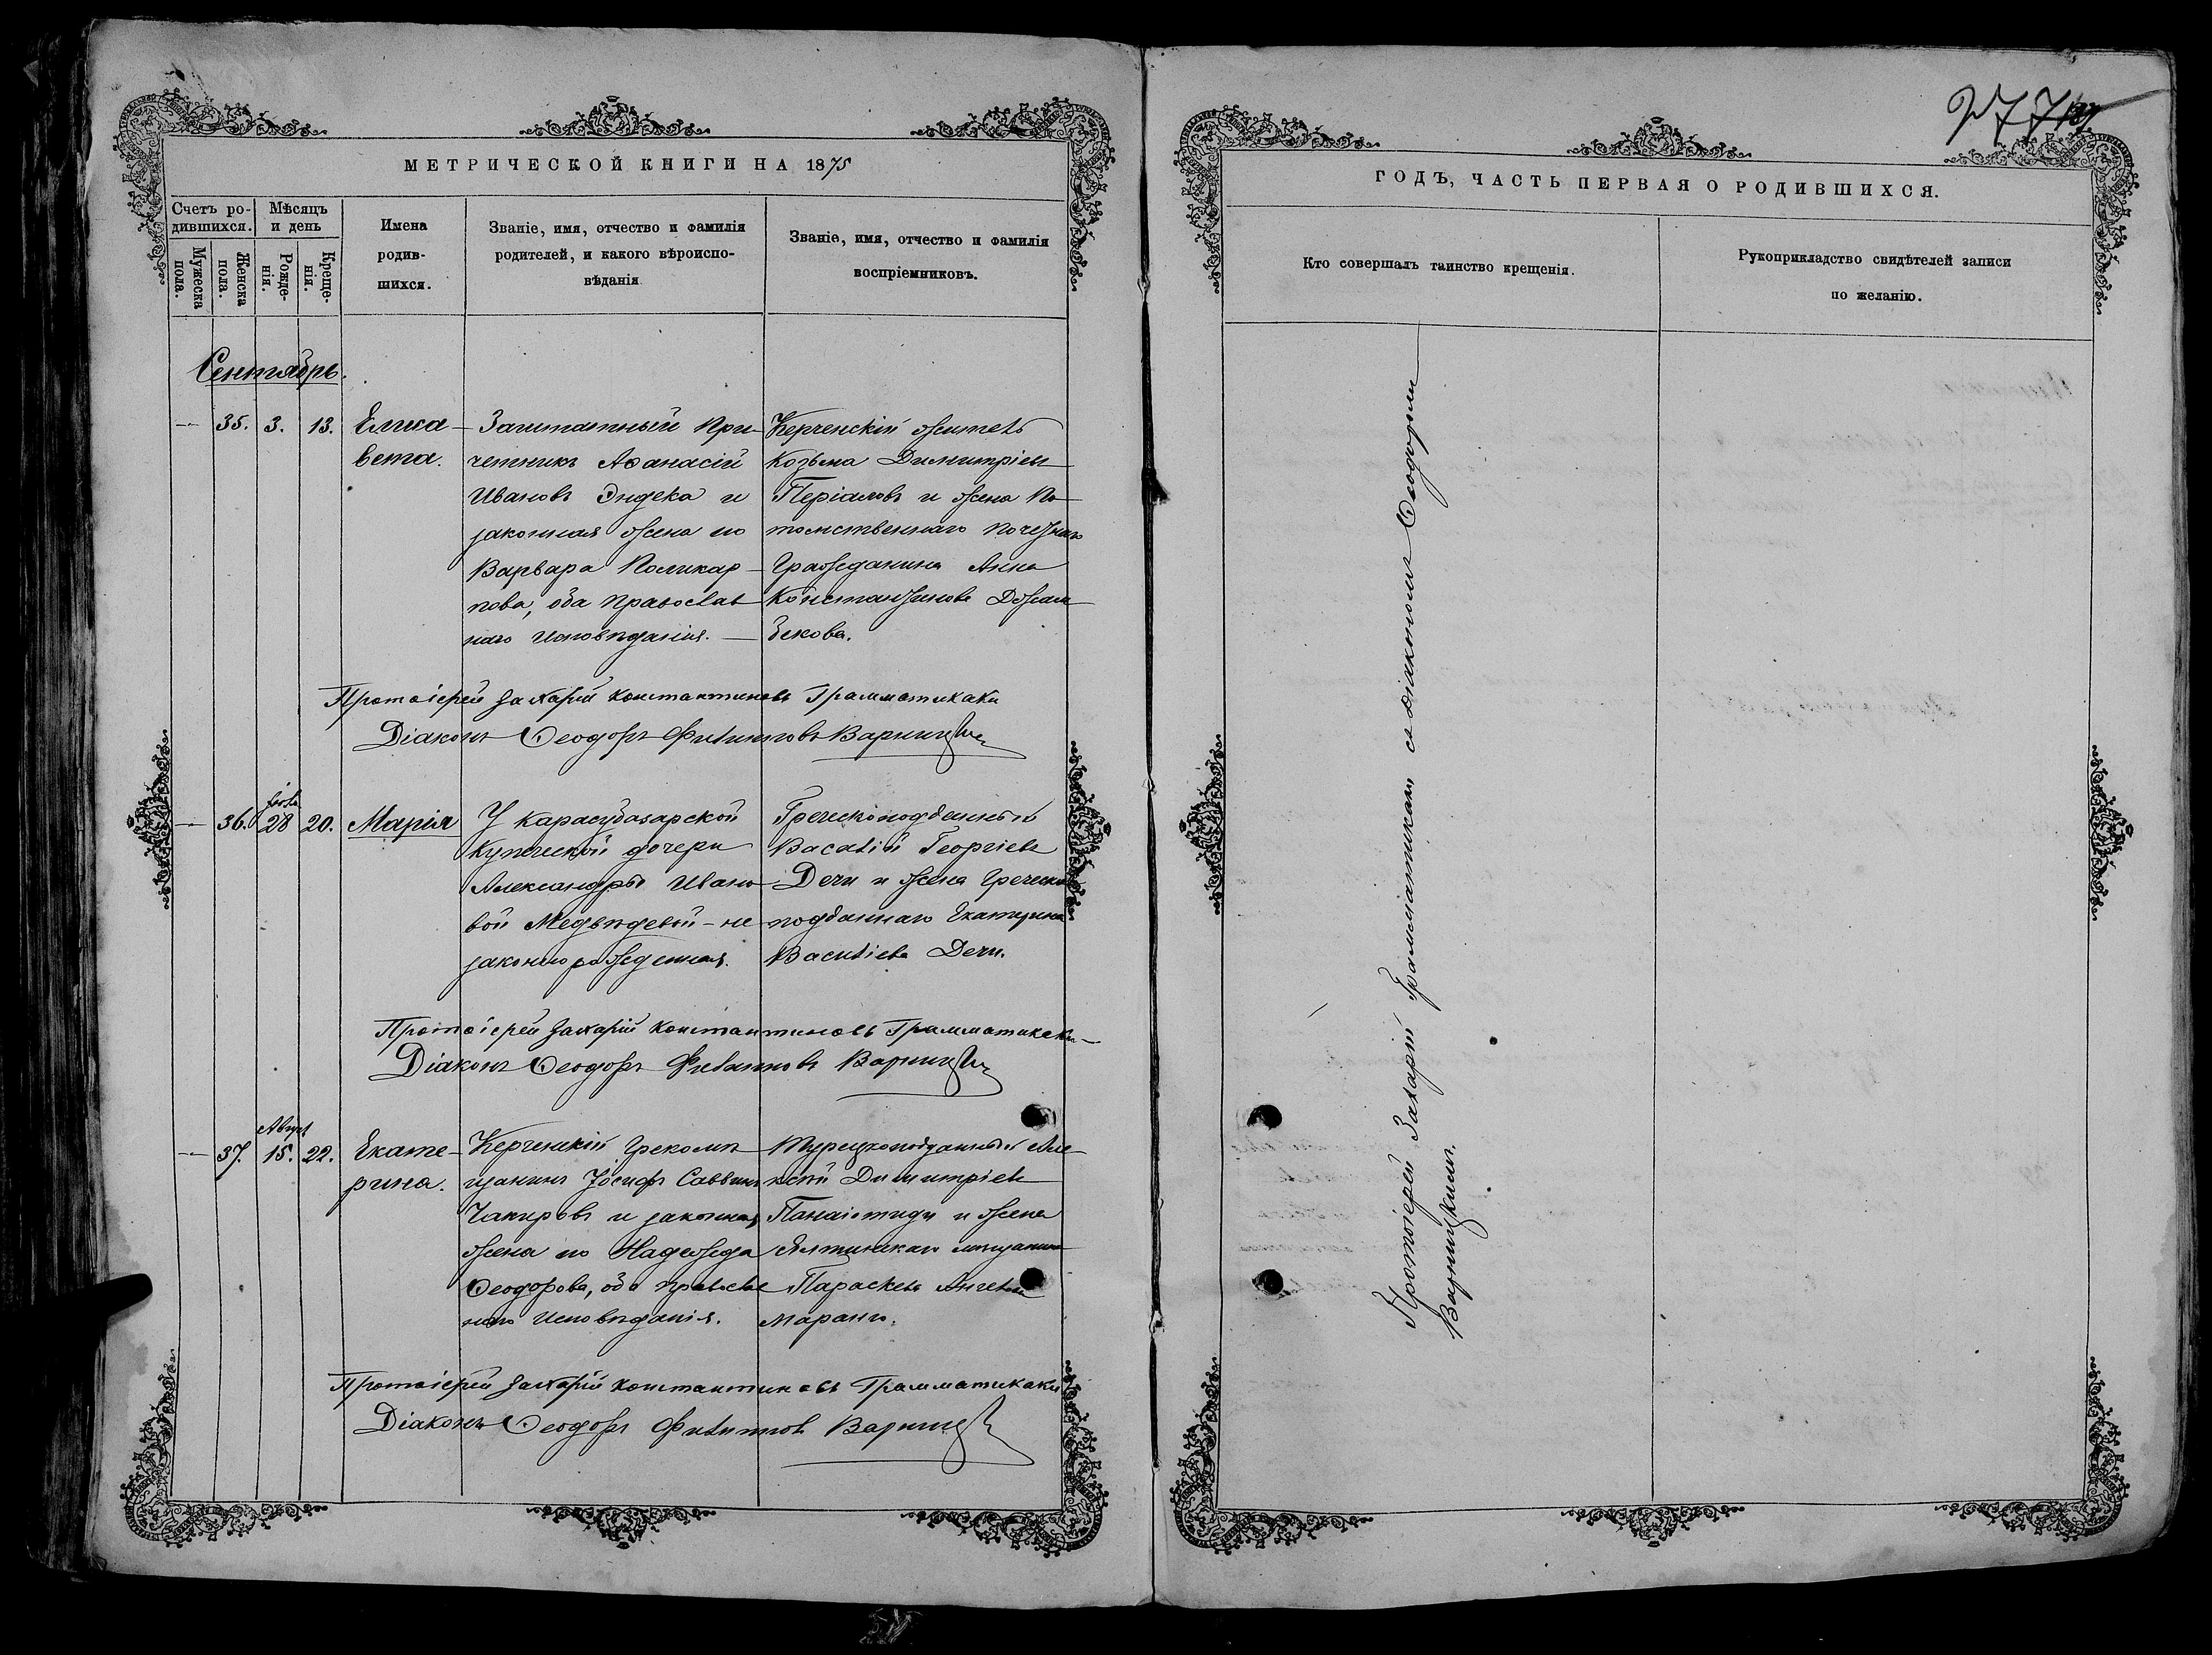 МЕТРИЧЕСКОЙ КНИГИ НА 1875
Счетъ ро-
дившихся.
Мѣсяцъ
и день
Мужеска
пола.
Женска
пола.
Рожде-
нія.
Креще-
нія.
Имена
родив-
шихся.
Званіе, имя, отчество и фамилія
родителей, и какого вѣроиспо-
вѣданія
Званіе, имя, отчество и фамилія
воспріемниковъ.
Сентябрь.
— 35. 3. 13.
Елиса-
вета.
Заштатный При-
четникъ Аѳанасій
Ивановъ Эндека и
законная жена его
Варвара Поликар-
пова, оба православ
наго исповѣданія. —
Керченскій житель
Козьма Димитріевъ
Періаловъ и жена По-
томственнаго почетнаго
Гражданина Анна
Константинова Джам-
бекова.
Протоіерей Захарій Константиновъ Грамматикаки
Діаконъ Ѳеодоръ Филипповъ Варницкій
— 36. Іюля 28 20.
Марія
У карасубазарской
купеческой дочери
Александры Ивано-
вой Медвѣдевой - не
законнорожденная.
Греческоподданный
Василій Георгіевъ
Дечи и жена Греческо
подданнаго Екатерина
Васильева Дечи.
Протоіерей Захарій Константиновъ Грамматикаки
Діаконъ Ѳеодоръ Филипповъ Варницкій
— 37. Август 15. 22.
Екате-
рина.
Керченскій Грекомѣ
щанинъ Іосифъ Саввинъ
Чакировъ и законная
жена его Надежда
Ѳеодорова, оба православ
наго исповѣданія.
Турецкоподданный Але-
ксѣй Димитріевъ
Панаіотиди и жена
Ялтинскаго мѣщанина
Параскева Ангели
Марани.
Протоіерей Захарій Константиновъ Грамматикаки
Діаконъ Ѳеодоръ Филипповъ Варницкій
277
ГОДЪ, ЧАСТЬ ПЕРВАЯ О РОДИВШИХСЯ.
Кто совершалъ таинство крещенія.
Рукоприкладство свидѣтелей записи
по желанію.
Протоіерей Захарій Грамматикаки съ діакономъ Ѳеодоромъ
Варницкимъ.